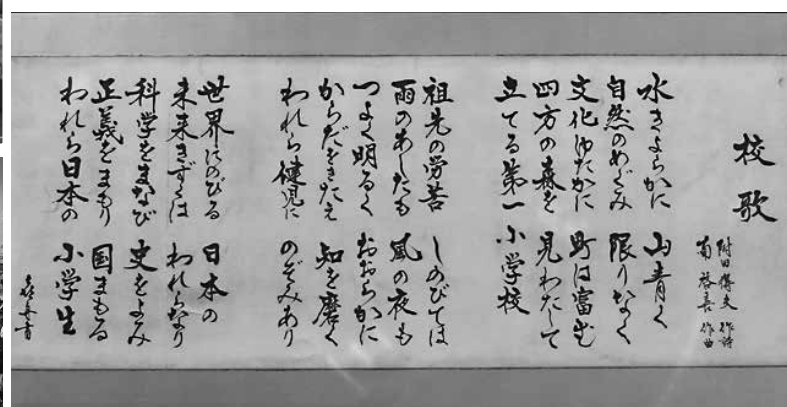 校歌
附田得夫 作詩
菊 啓喜 作曲
水きよらかに 山青く
自然のめぐみ 限りなく
文化ゆたかに 町は富む
四方の森を 見わたして
立てる第一 小学校
祖先の労苦 しのびては
雨のあしたも 風の夜も
つよく明るく おおらかに
からだをきたえ 知を磨く
われら健児に のぞみあり
世界にのびる 日本の
未来きずくは われらなり
科学をまなび 史をよみ
正義をまもり 国まもる
われら日本の 小学生